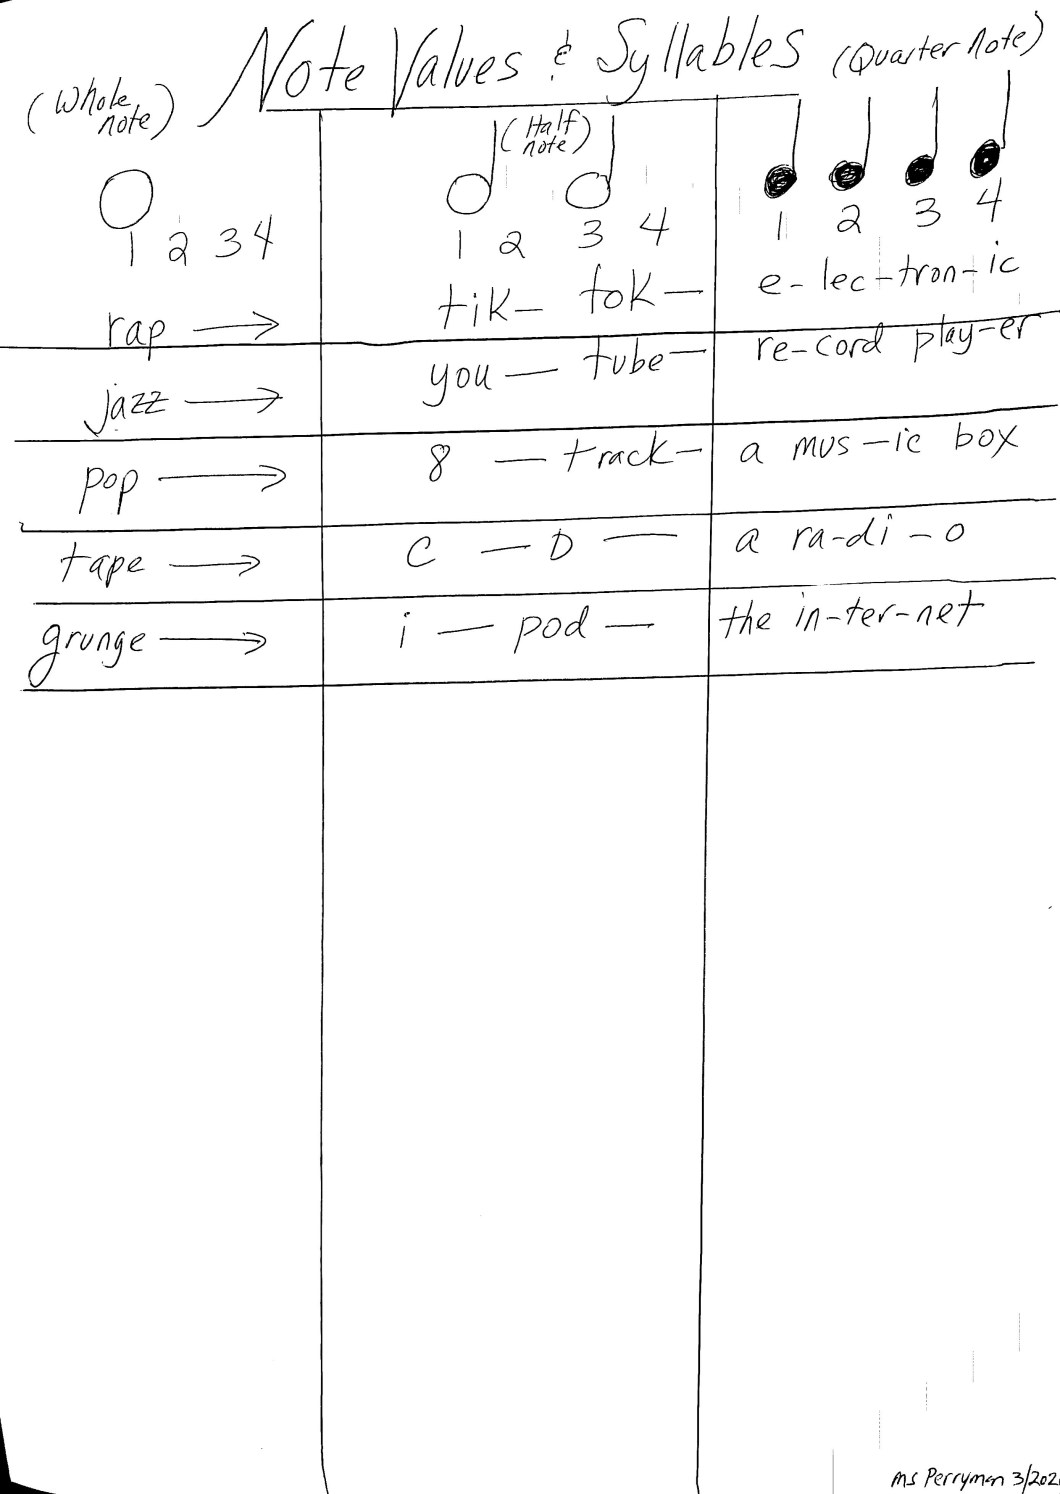 Note Values & Syllables
(Whole note)
(Half note)
(Quarter note)
1 2 3 4
1 2 3 4
1 2 3 4
rap → tik- tok— e-lec-tron-ic
jazz → you — tube— re-cord play-er
pop → 8 — track- a mus-ic box
tape → C — D — a ra-di-o
grunge → i — pod — the in-ter-net
Ms Perryman